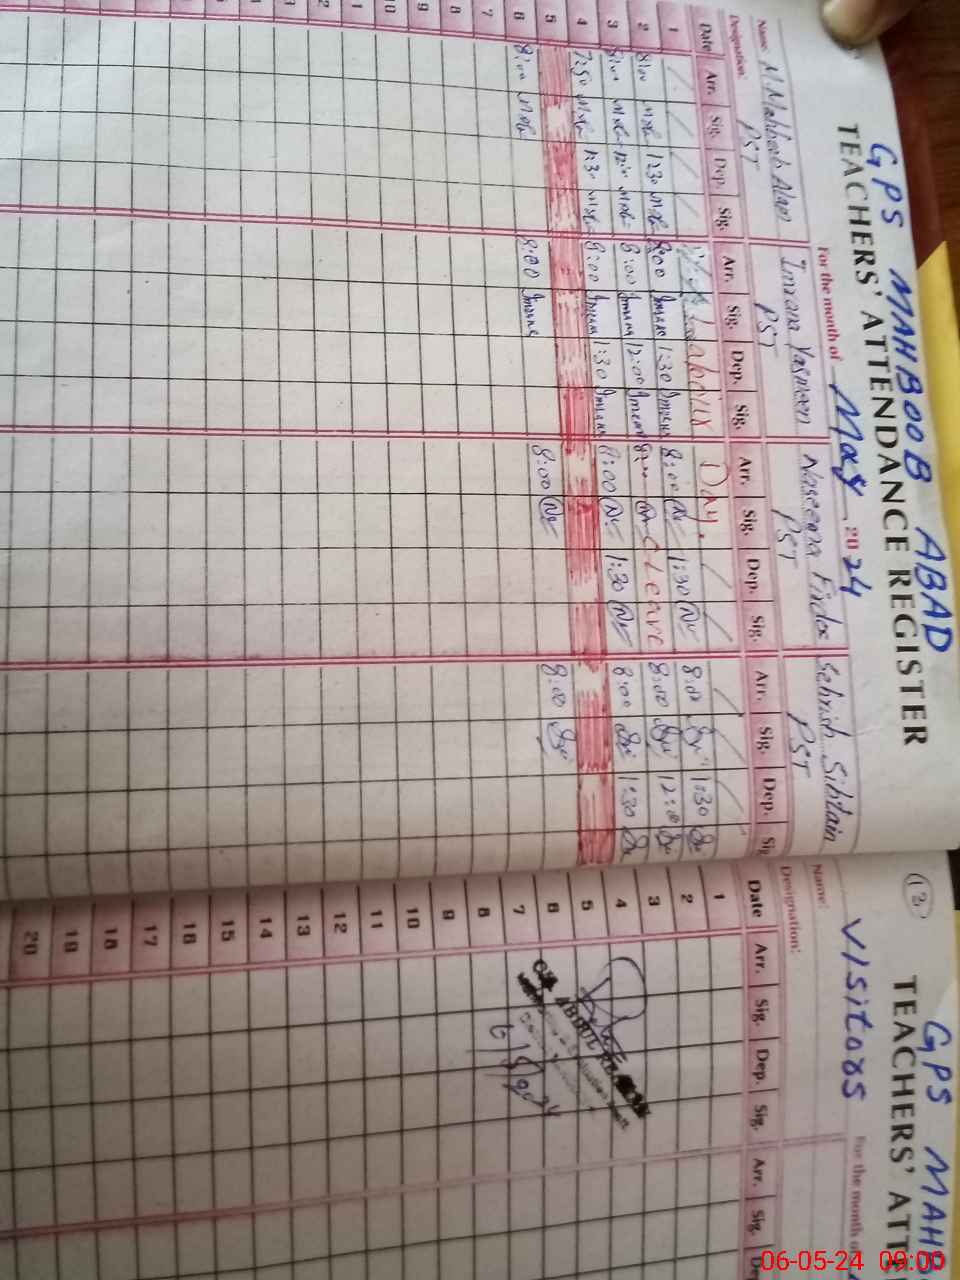 GPS MAHBOOB ABAD
TEACHERS' ATTENDANCE REGISTER
For the month of May 2024
Name: M. Mahboob Alam
Imrana Yasmeen
Naseema Firdos
Sehrish Sibtain
Designation: PST
PST
PST
PST
Date Arr. Sig. Dep. Sig. Arr. Sig. Dep. Sig. Arr. Sig. Dep. Sig. Arr. Sig. Dep. Sig
1 Labour Day.
2 8:00 1:30 8:00 1:30 8:00 1:30 8:00 1:30
3 8:00 12:00 8:00 12:00 C Leave 8:00 12:00
4 7:50 1:30 8:00 1:30 8:00 1:30 8:00 1:30
5
6 8:00 8:00 8:00 8:00
7
8
9
10
11
12
13
GPS MAHB
TEACHERS' ATTE
13
Visitors
For the month o
Name:
Designation:
Date Arr. Sig. Dep. Sig. Arr. Sig. De
1
2
3
4
5
6
7
8
9
10
11
12
13
14
15
16
17
18
19
20
ABDUL
6/5/2024
06-05-24 09:00